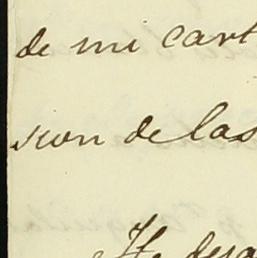 de mi cart
sion de las
He desa